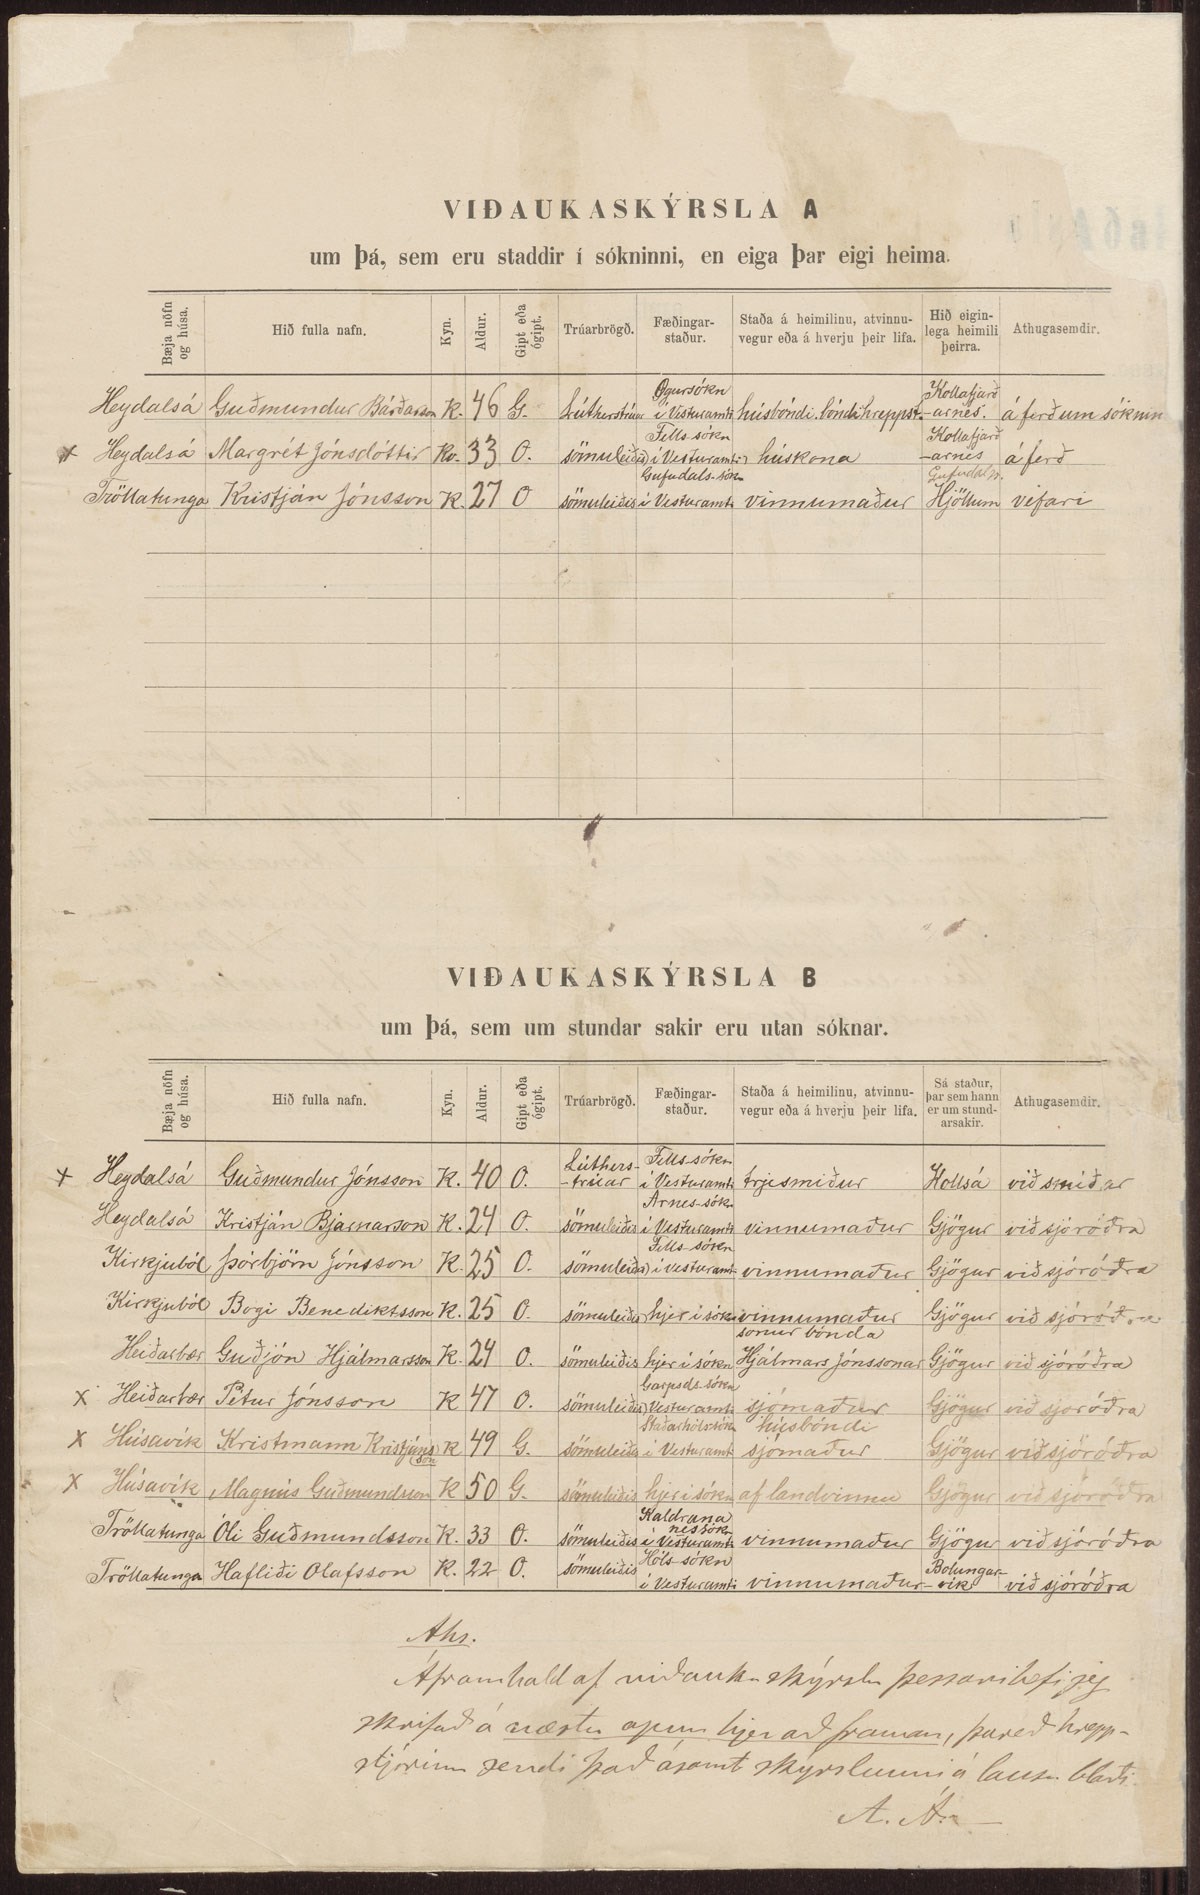 VIÐAUKASKÝRSLA A
um þá, sem eru staddir í sókninni, en eiga þar eigi heima.
Bæja nöfn og húsa. Hið fulla nafn. Kyn. Aldur. Gipt eða ógipt. Trúarbrögð. Fæðingar-staður. Staða á heimilinu, atvinnu-vegur eða á hverju þeir lifa. Hið eigin-lega heimili þeirra. Athugasemdir.
Heydalsá Guðmundur Bárðarson K. 46 G. Lútherstrúar Ögursókn í Vesturamti húsbóndi, bóndi hreppst. Kollafjarð-arnes. á ferð um sóknin
x Heydalsá Margrét Jónsdóttir Kv. 33 O. sömuleiðis Fells-sókn í Vesturamti húskona Kollafjarð-arnes á ferð
Tröllatunga Kristján Jónsson K. 27 O sömuleiðis Gufudals-sókn í Vesturamti vinnumaður Hjöllum vefari
VIÐAUKASKÝRSLA B
um þá, sem um stundar sakir eru utan sóknar.
Bæja nöfn og húsa. Hið fulla nafn. Kyn. Aldur. Gipt eða ógipt. Trúarbrögð. Fæðingar-staður. Staða á heimilinu, atvinnu-vegur eða á hverju þeir lifa. Sá staður, þar sem hann er um stund-arsakir. Athugasemdir.
x Heydalsá Guðmundur Jónsson K. 40 O. Lúthers-trúar Fells-sókn í Vesturamti trjesmiður Hollsá við smíðar
Heydalsá Kristján Bjarnarson K. 24 O. sömuleiðis Árnes-sókn í Vesturamti vinnumaður Gjögur við sjóróðra
Kirkjuból Þórbjörn Jónsson K. 25 O. sömuleiðis Fells-sókn í Vesturamt vinnumaður Gjögur við sjóróðra
Kirkjuból Bogi Benediktsson K. 25 O. sömuleiðis hjer í sókn vinnumaður Gjögur við sjóróðra
Heiðarbær Guðjón Hjálmarsson K. 24 O. sömuleiðis hjer í sókn sonur bónda Hjálmars Jónssonar Gjögur við sjóróðra
x Heiðarbær Pétur Jónsson K 47 O. sömuleiðis Garpsds-sókn Vesturamti sjómaður Gjögur við sjóróðra
x Húsavík Kristmann Kristjáns son K 49 G. sömuleiðis Staðarhólssókn í Vesturamt húsbóndi sjómaður Gjögur við sjóróðra
x Húsavík Magnús Guðmundsson K 50 G. sömuleiðis hjer í sókn af landvinnu Gjögur við sjóróðra
Tröllatunga Óli Guðmundsson K. 33 O. sömuleiðis Kaldrana nessókn í Vesturamti vinnumaður Gjögur við sjóróðra
Tröllatunga Hafliði Olafsson K. 22 O. sömuleiðis Hóls-sókn í Vesturamti vinnumaður Bolungar-vík við sjóróðra
Ahs.
Áframhald af viðauka skýrslu þessari hefi jeg
skrifað á næstu opnu hjer að framan, þareð hrepp-
stjórinn sendi það ásamt skýrslunni á lausu blaði.
A. Á.